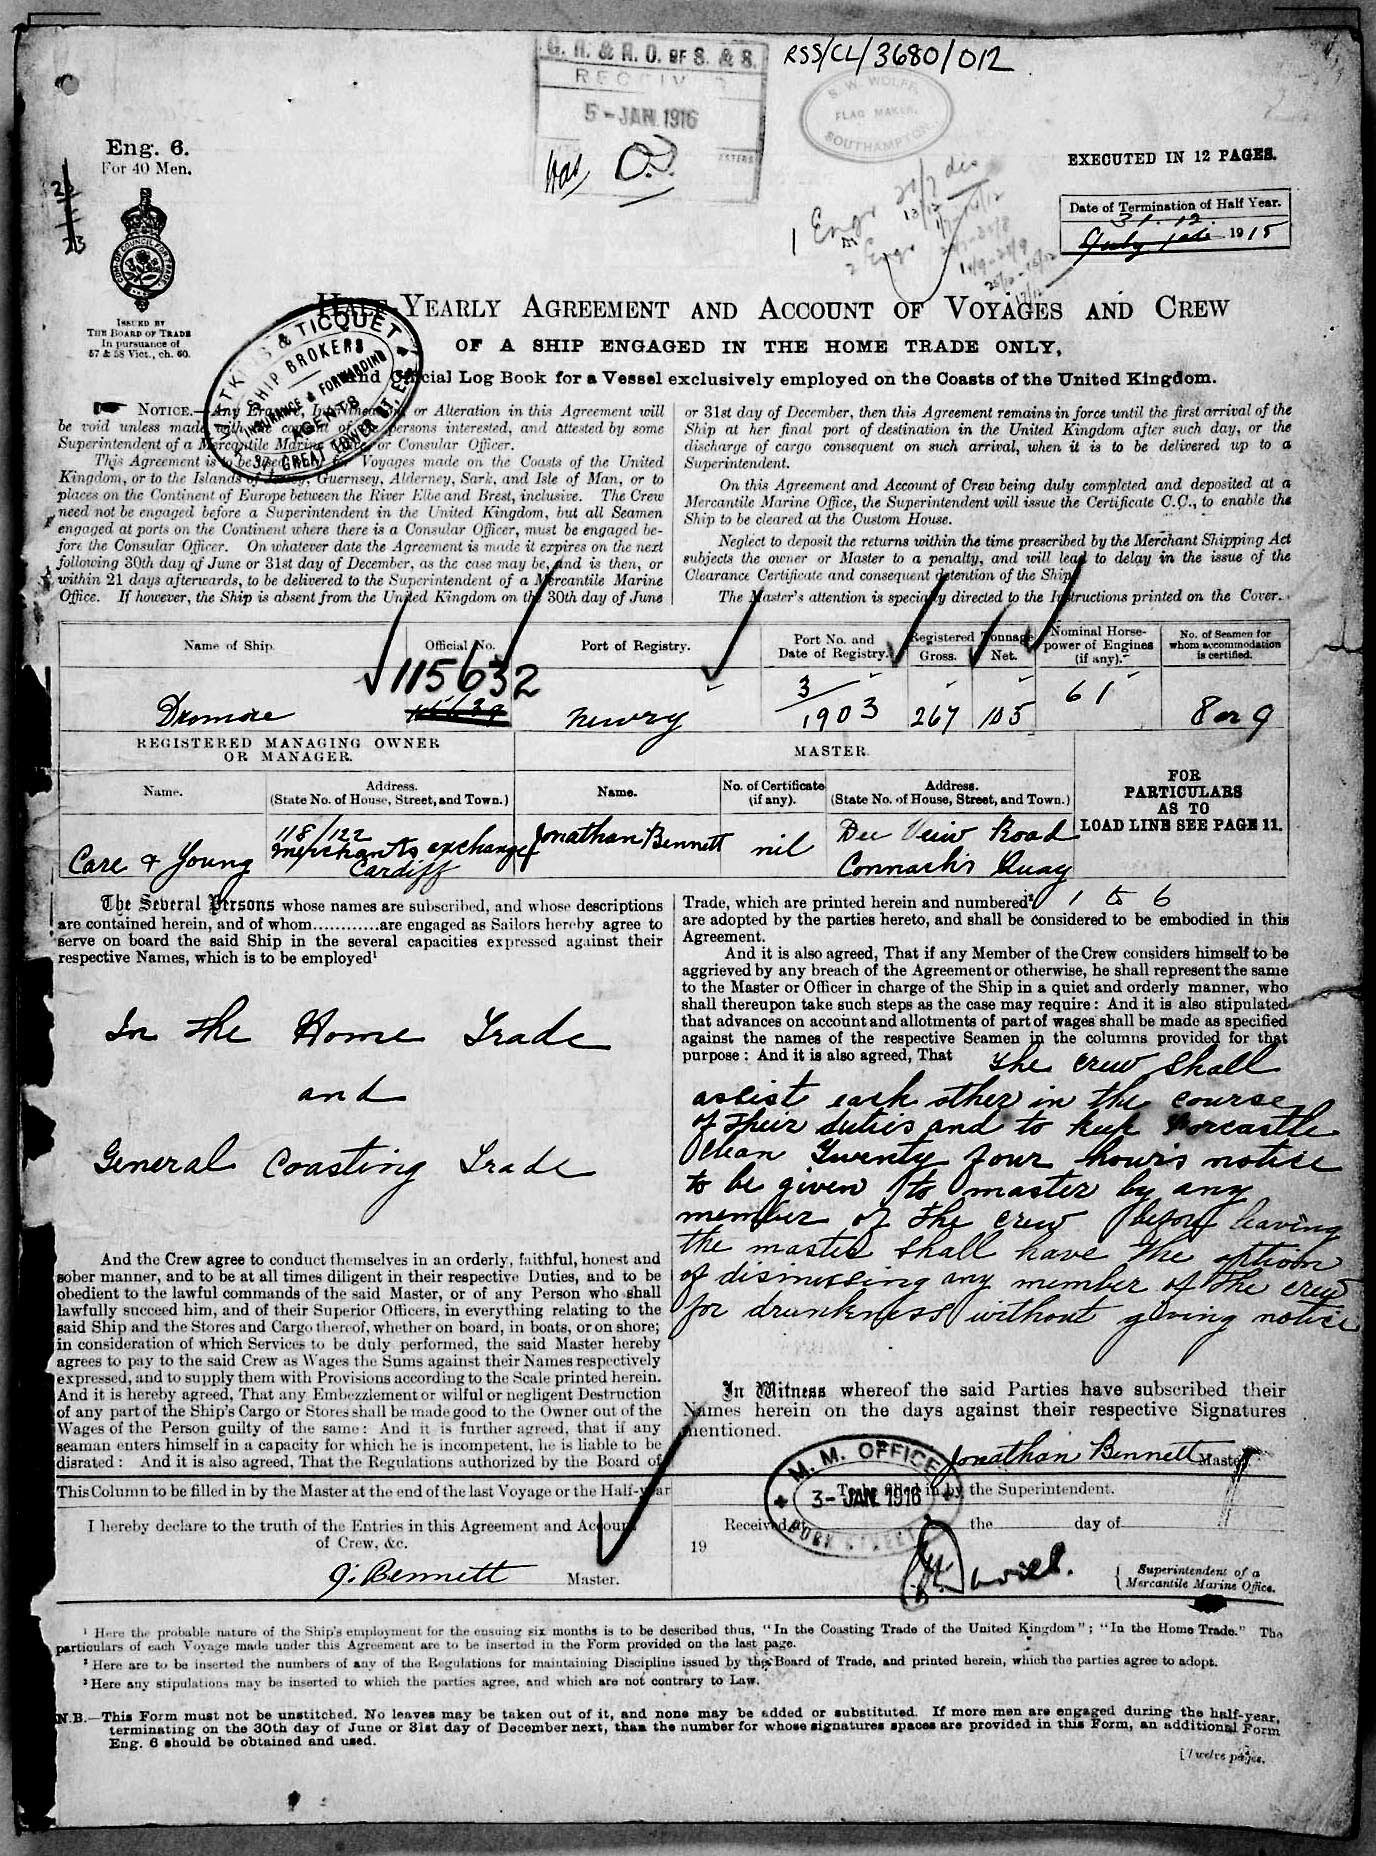 RSS/CL/3680/012
G. R. & R. O. OF S. & S.
RECEIVED
5-JAN.1916
S. W. WOLFF,
FLAG MAKER,
SOUTHAMPTON.
Eng. 6.
For 40 Men.
EXECUTED IN 12 PAGES.
Date of Termination of Half Year.
31.12.
1915
23
1 Engr
2 Engr
ISSUED BY
THE BOARD OF TRADE
In pursuance of
57 & 58 Vict., ch. 60.
HALF-YEARLY AGREEMENT AND ACCOUNT OF VOYAGES AND CREW
OF A SHIP ENGAGED IN THE HOME TRADE ONLY,
and Official Log Book for a Vessel exclusively employed on the Coasts of the United Kingdom.
& TICQUET
SHIP BROKERS
INSURANCE & FORWARDING
AGENTS
37 GREAT TOWER ST, E.C.
NOTICE.—Any Erasure, Interlineation or Alteration in this Agreement will
be void unless made with the consent of the persons interested, and attested by some
Superintendent of a Mercantile Marine Office or Consular Officer.
This Agreement is to be used only for Voyages made on the Coasts of the United
Kingdom, or to the Islands of Jersey, Guernsey, Alderney, Sark, and Isle of Man, or to
places on the Continent of Europe between the River Elbe and Brest, inclusive. The Crew
need not be engaged before a Superintendent in the United Kingdom, but all Seamen
engaged at ports on the Continent where there is a Consular Officer, must be engaged be-
fore the Consular Officer. On whatever date the Agreement is made it expires on the next
following 30th day of June or 31st day of December, as the case may be, and is then, or
within 21 days afterwards, to be delivered to the Superintendent of a Mercantile Marine
Office. If however, the Ship is absent from the United Kingdom on the 30th day of June
or 31st day of December, then this Agreement remains in force until the first arrival of the
Ship at her final port of destination in the United Kingdom after such day, or the
discharge of cargo consequent on such arrival, when it is to be delivered up to a
Superintendent.
On this Agreement and Account of Crew being duly completed and deposited at a
Mercantile Marine Office, the Superintendent will issue the Certificate C.C., to enable the
Ship to be cleared at the Custom House.
Neglect to deposit the returns within the time prescribed by the Merchant Shipping Act
subjects the owner or Master to a penalty, and will lead to delay in the issue of the
Clearance Certificate and consequent detention of the Ship.
The Master's attention is specially directed to the Instructions printed on the Cover.
Name of Ship. Official No. Port of Registry. Port No. and Date of Registry. Registered Tonnage Gross. Net. Nominal Horse-power of Engines (if any). No. of Seamen for whom accommodation is certified.
Dromore 115632 Newry 3/1903 267 105 61 8 or 9
REGISTERED MANAGING OWNER
OR MANAGER.
MASTER.
Name. Address. (State No. of House, Street, and Town.) Name. No. of Certificate (if any). Address. (State No. of House, Street, and Town.)
FOR
PARTICULARS
AS TO
LOAD LINE SEE PAGE 11.
Care & Young 118/122 merchants exchange Cardiff Jonathan Bennett nil Dee View Road Connach's Quay
The Several Persons whose names are subscribed, and whose descriptions
are contained herein, and of whom............are engaged as Sailors hereby agree to
serve on board the said Ship in the several capacities expressed against their
respective Names, which is to be employed¹
In the Home Trade
and
General Coasting Trade
And the Crew agree to conduct themselves in an orderly, faithful, honest and
sober manner, and to be at all times diligent in their respective Duties, and to be
obedient to the lawful commands of the said Master, or of any Person who shall
lawfully succeed him, and of their Superior Officers, in everything relating to the
said Ship and the Stores and Cargo thereof, whether on board, in boats, or on shore;
in consideration of which Services to be duly performed, the said Master hereby
agrees to pay to the said Crew as Wages the Sums against their Names respectively
expressed, and to supply them with Provisions according to the Scale printed herein.
And it is hereby agreed, That any Embezzlement or wilful or negligent Destruction
of any part of the Ship's Cargo or Stores shall be made good to the Owner out of the
Wages of the Person guilty of the same: And it is further agreed, that if any
seaman enters himself in a capacity for which he is incompetent, he is liable to be
disrated: And it is also agreed, That the Regulations authorized by the Board of
Trade, which are printed herein and numbered² 1 to 6
are adopted by the parties hereto, and shall be considered to be embodied in this
Agreement.
And it is also agreed, That if any Member of the Crew considers himself to be
aggrieved by any breach of the Agreement or otherwise, he shall represent the same
to the Master or Officer in charge of the Ship in a quiet and orderly manner, who
shall thereupon take such steps as the case may require: And it is also stipulated
that advances on account and allotments of part of wages shall be made as specified
against the names of the respective Seamen in the columns provided for that
purpose: And it is also agreed, That the crew shall
assist each other in the course
of their duties and to keep Forcastle
Clean Twenty four hours notice
to be given to master by any
member of the crew before leaving
the master shall have the option
of dismissing any member of the crew
for drunkness without giving notice
In Witness whereof the said Parties have subscribed their
Names herein on the days against their respective Signatures
mentioned.
Jonathan Bennett Master
This Column to be filled in by the Master at the end of the last Voyage or the Half-year
I hereby declare to the truth of the Entries in this Agreement and Account
of Crew, &c.
J. Bennett Master.
To be filled in by the Superintendent.
M. M. OFFICE
3-JAN.1916
DOCK STREET
Received the day of
19
Davies.
Superintendent of a
Mercantile Marine Office.
¹ Here the probable nature of the Ship's employment for the ensuing six months is to be described thus, "In the Coasting Trade of the United Kingdom"; "In the Home Trade." The
particulars of each Voyage made under this Agreement are to be inserted in the Form provided on the last page.
² Here are to be inserted the numbers of any of the Regulations for maintaining Discipline issued by the Board of Trade, and printed herein, which the parties agree to adopt.
³ Here any stipulations may be inserted to which the parties agree, and which are not contrary to Law.
N.B.—This Form must not be unstitched. No leaves may be taken out of it, and none may be added or substituted. If more men are engaged during the half-year,
terminating on the 30th day of June or 31st day of December next, than the number for whose signatures spaces are provided in this Form, an additional Form
Eng. 6 should be obtained and used.
[Twelve pages.